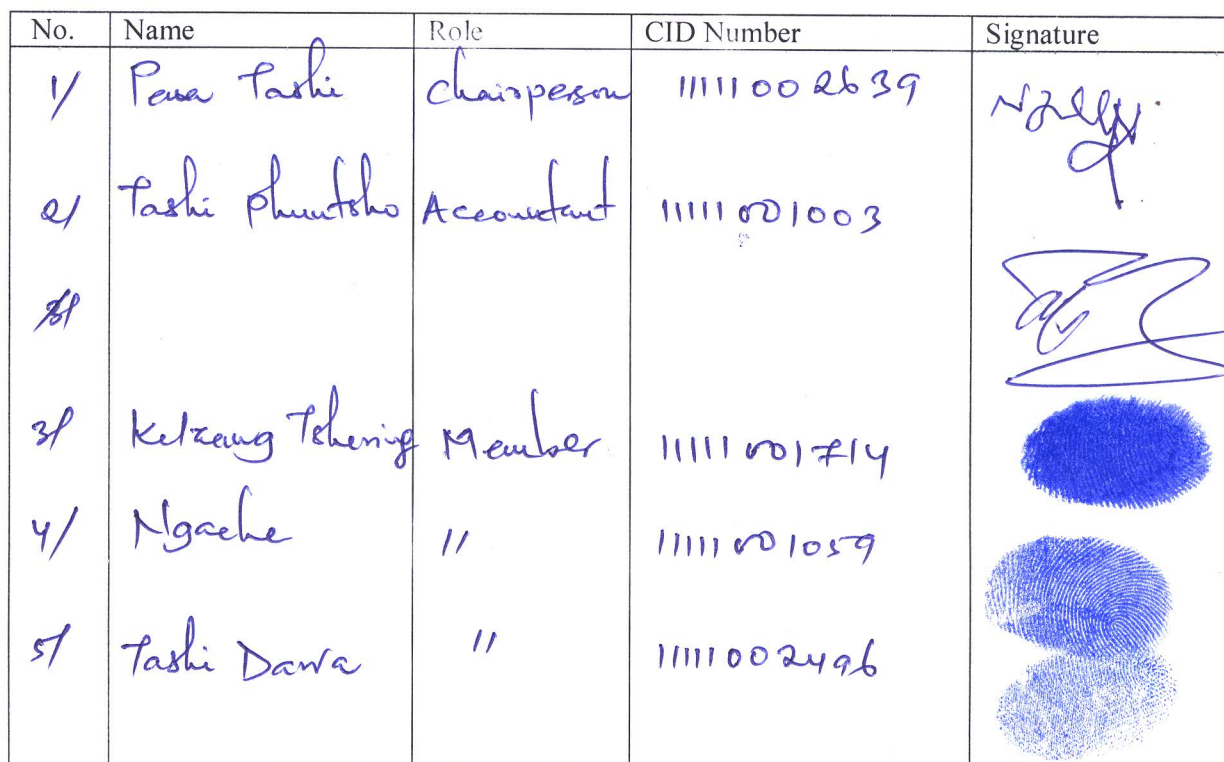 No. Name Role CID Number Signature
1/ Pema Tashi Chairperson 11111002639
2/ Tashi Phuntsho Accountant 11111001003
3/ Kelzang Tshering Member 11111001714
4/ Ngache " 11111001059
5/ Tashi Dawa " 11111002496